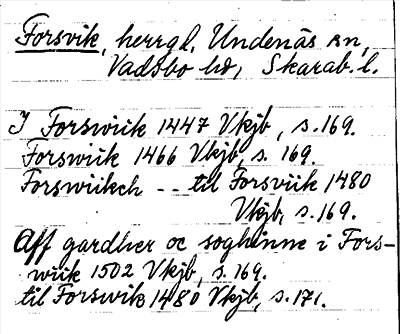 Forsvik, herrgl, Undenäs sn,
Vadsbo hd, Skarab. l.
I Forswiik 1447 Vkjb, s. 169.
Forswiik 1466 Vkjb, s. 169.
Forswiikch -- til Forsviik 1480
Vkjb, s. 169.
Aff gardher oc soghinne i Fors-
wiik 1502 Vkjb, s. 169.
til Forswik 1480 Vkjb, s. 171.